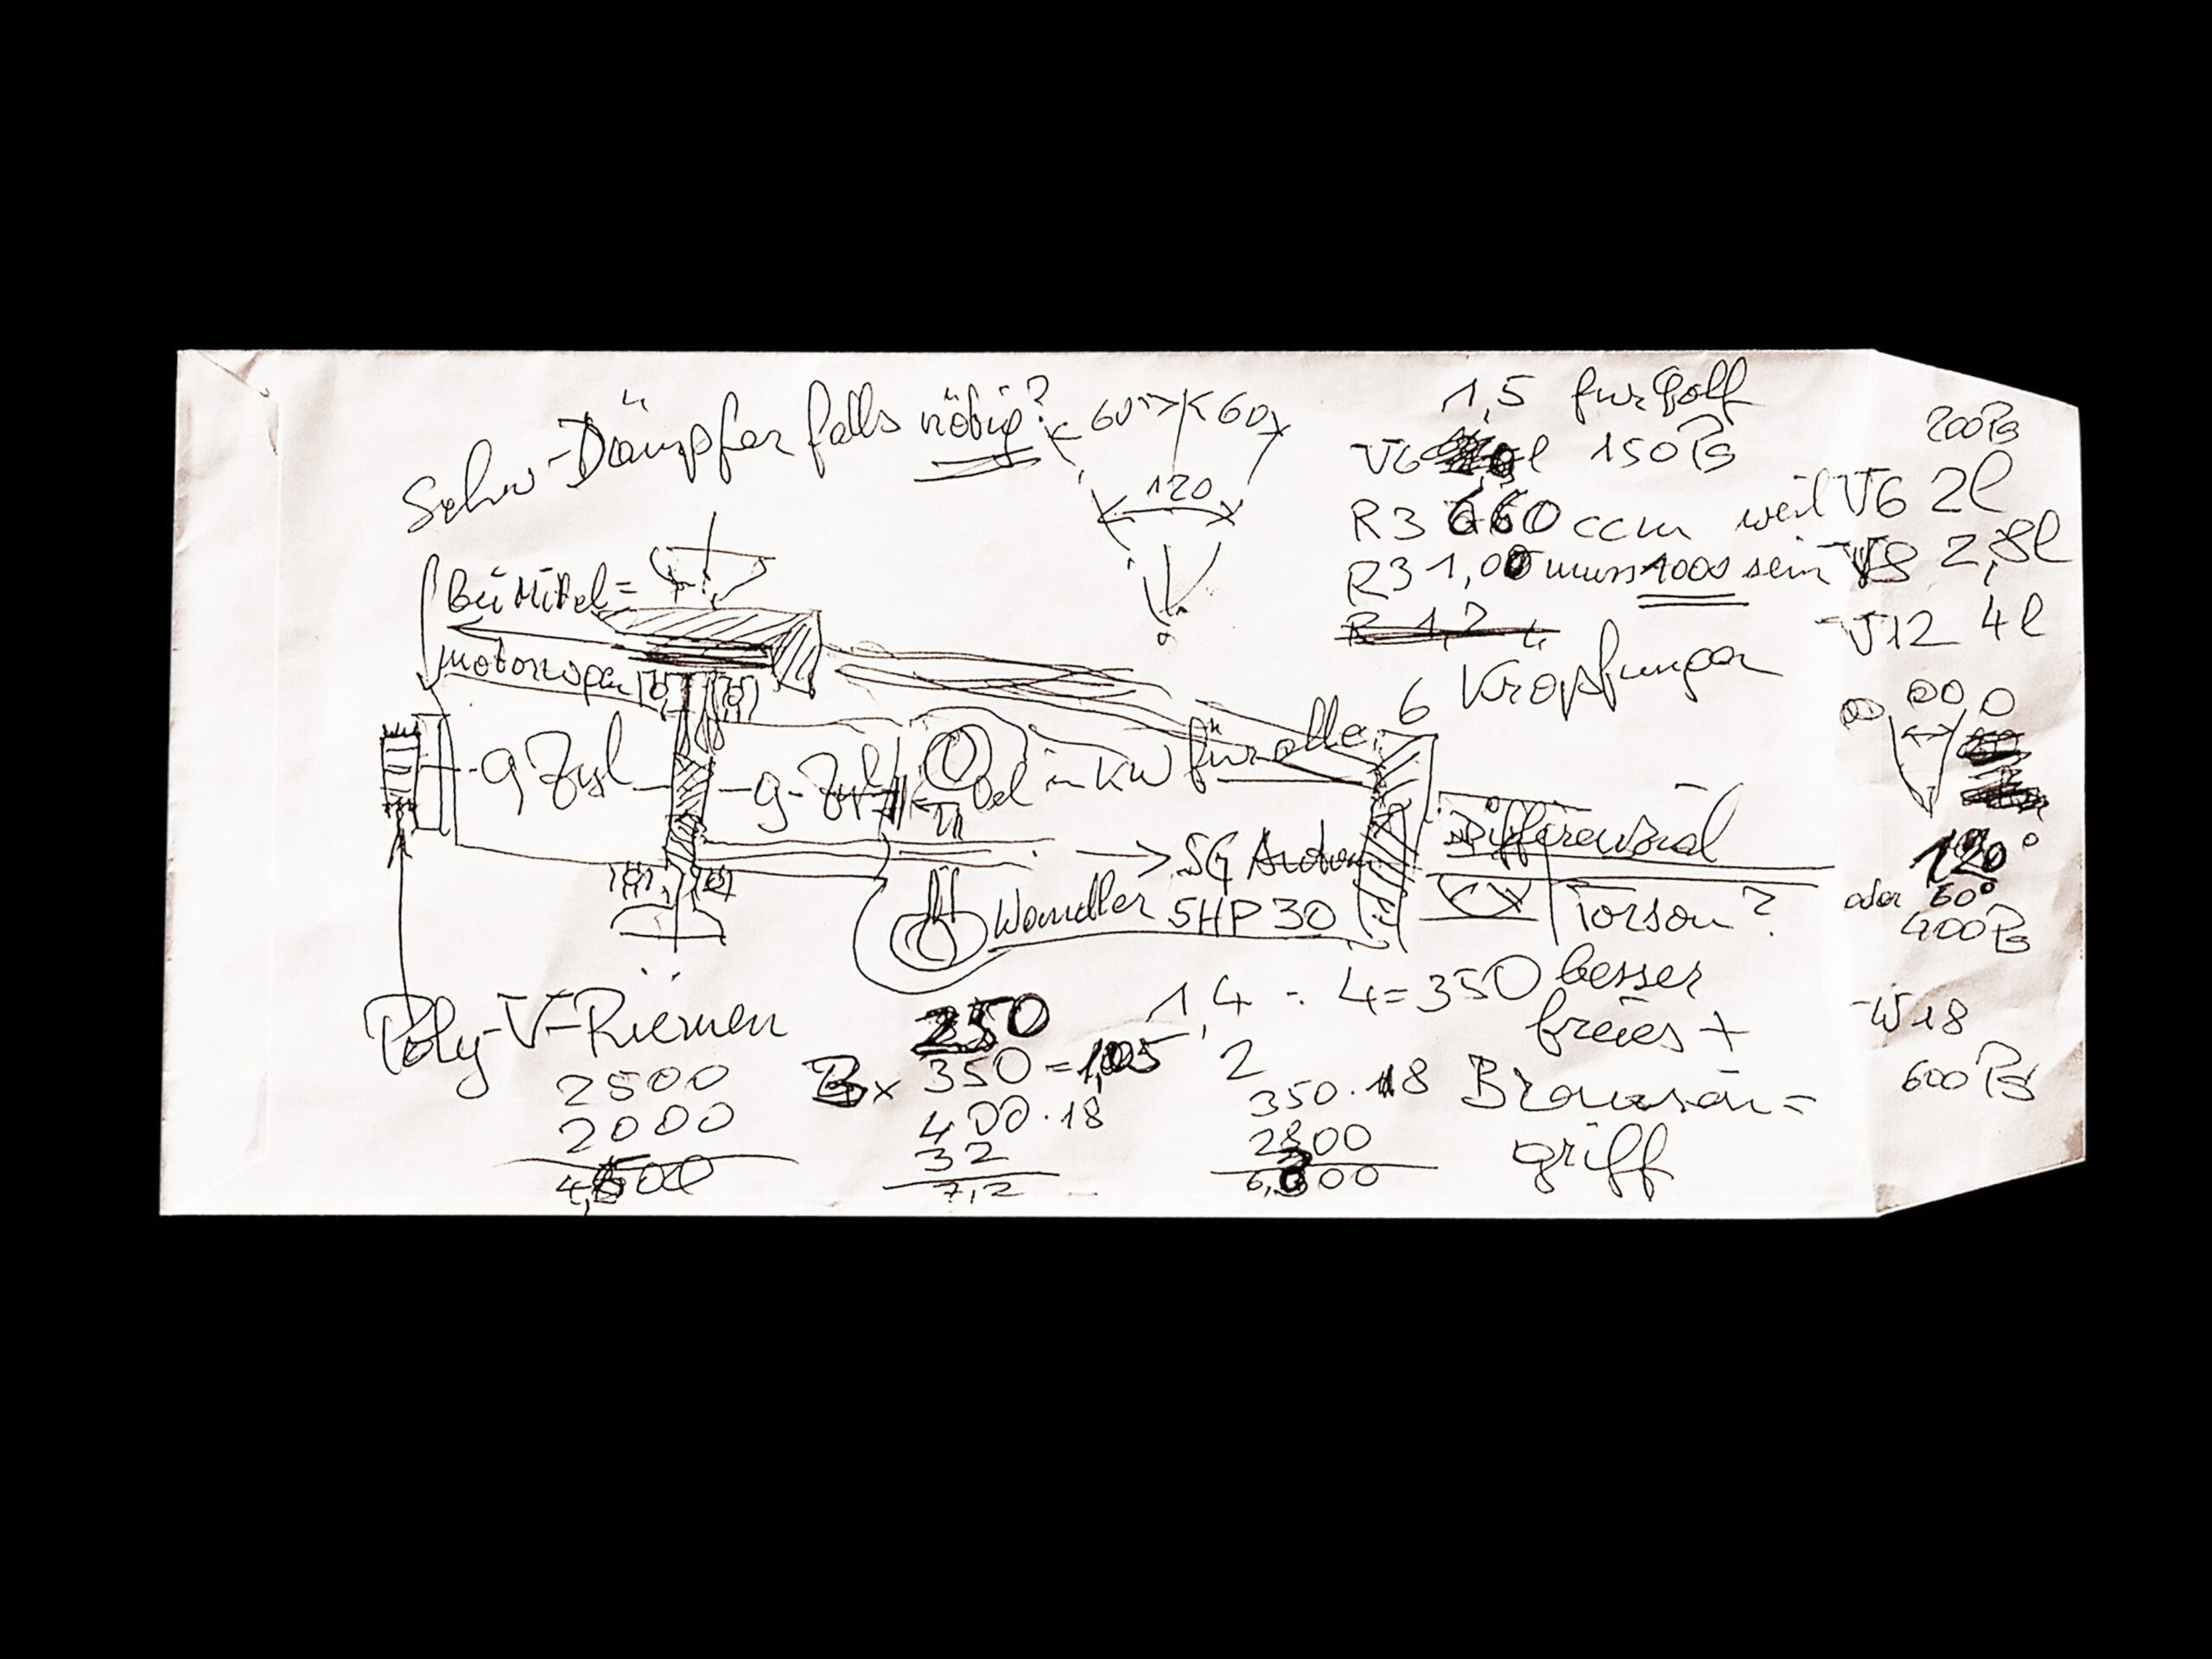 Schw-Dämpfer falls nötig?
60° 60
120
1,5 für Golf
V6 l 150 Ps
R3 660 ccm weil V6 2l
200 Ps
R3 1,00 muss 1000 sein V8 2,8l
V12 4l
6 Kröpfungen
bei Mittel=
motorwagen
9 Zyl - 9-Zyl
in KW für alle
5G Autom
Wandler 5HP30
Differenzial
Torson?
120°
oder 60°
400 Ps
W18
600 Ps
Poly-V-Riemen
2500
2000
250
x 350 = 1,05
400 · 18
32
7,2
1,4 : 4 = 350 besser
freies +
2
350 · 18
2800
6,300
griff